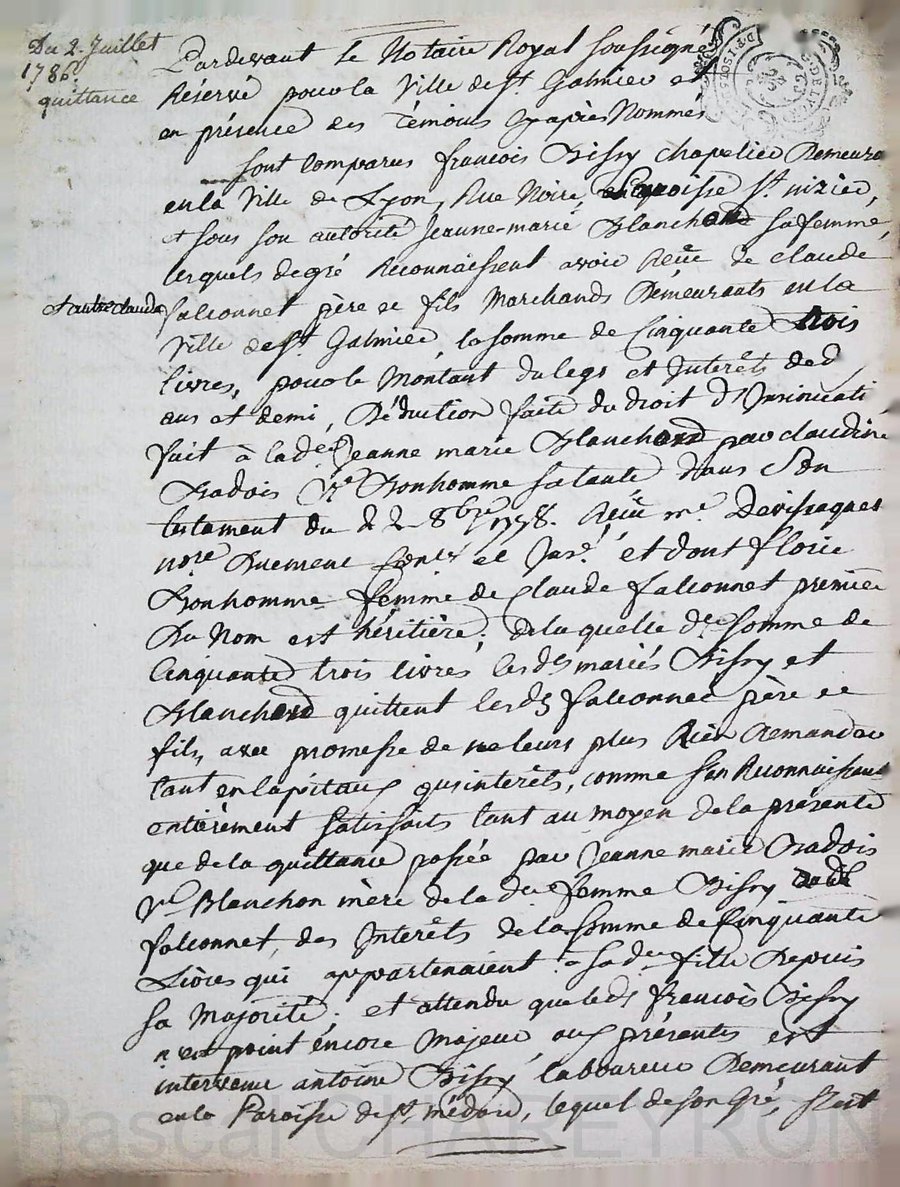 Du 2. Juillet
1786.
quittance
Pardevant le Notaire Royal soussigné
Réservé pour la Ville de St Galmier et
en présence des Témoins cy après Nommés
sont comparus françois Bissy chapelier Demeurant
en la Ville de Lyon, Rue Noire, Paroisse St. nizier,
et sous son autorité Jeanne-marie Blanchard sa femme,
lesquels de gré Reconnaissent avoir Reçu de claude
et autre claude
falconnet père et fils Marchands Demeurants en la
Ville de St. Galmier, la somme de Cinquante trois
livres, pour le Montant du legs et Interêts de
ans et demi, Déduction faite du droit d'Insinuati
fait à lade. Jeanne marie Blanchard par claudine
Badois Ve. Bonhomme sa tante dans son
testament du 22 8bre Reçu me. Devissaguet
nore. Duement Conlé et Insé. et dont florie
Bonhomme femme de Claude falconnet premier
Du Nom est héritière; de laquelle de. somme de
Cinquante trois livres, lesds mariés Bissy et
Blanchard quittent lesds falconnet père et
fils, avec promesse de ne leurs plus Rien demander
tant en Capitaux qu'interêts, comme s'en Reconnaissant
entièrement satisfaits tant au moyen de la présente
que de la quittance passée par Jeanne marie Badois
Ve. Blanchon mère de la de. femme Bissy
falconnet, des Interêts de la somme de Cinquante
Livres qui appartenaient à sa de. fille Depuis
sa Majorité; et attendu que led. françois Bissy
n'est point encore Majeur aux présentes est
intervenu antoine Bissy laboureur Demeurant
en la Paroisse de St. médard, lequel de son Gré, s'est
Pascal CHAREYRON